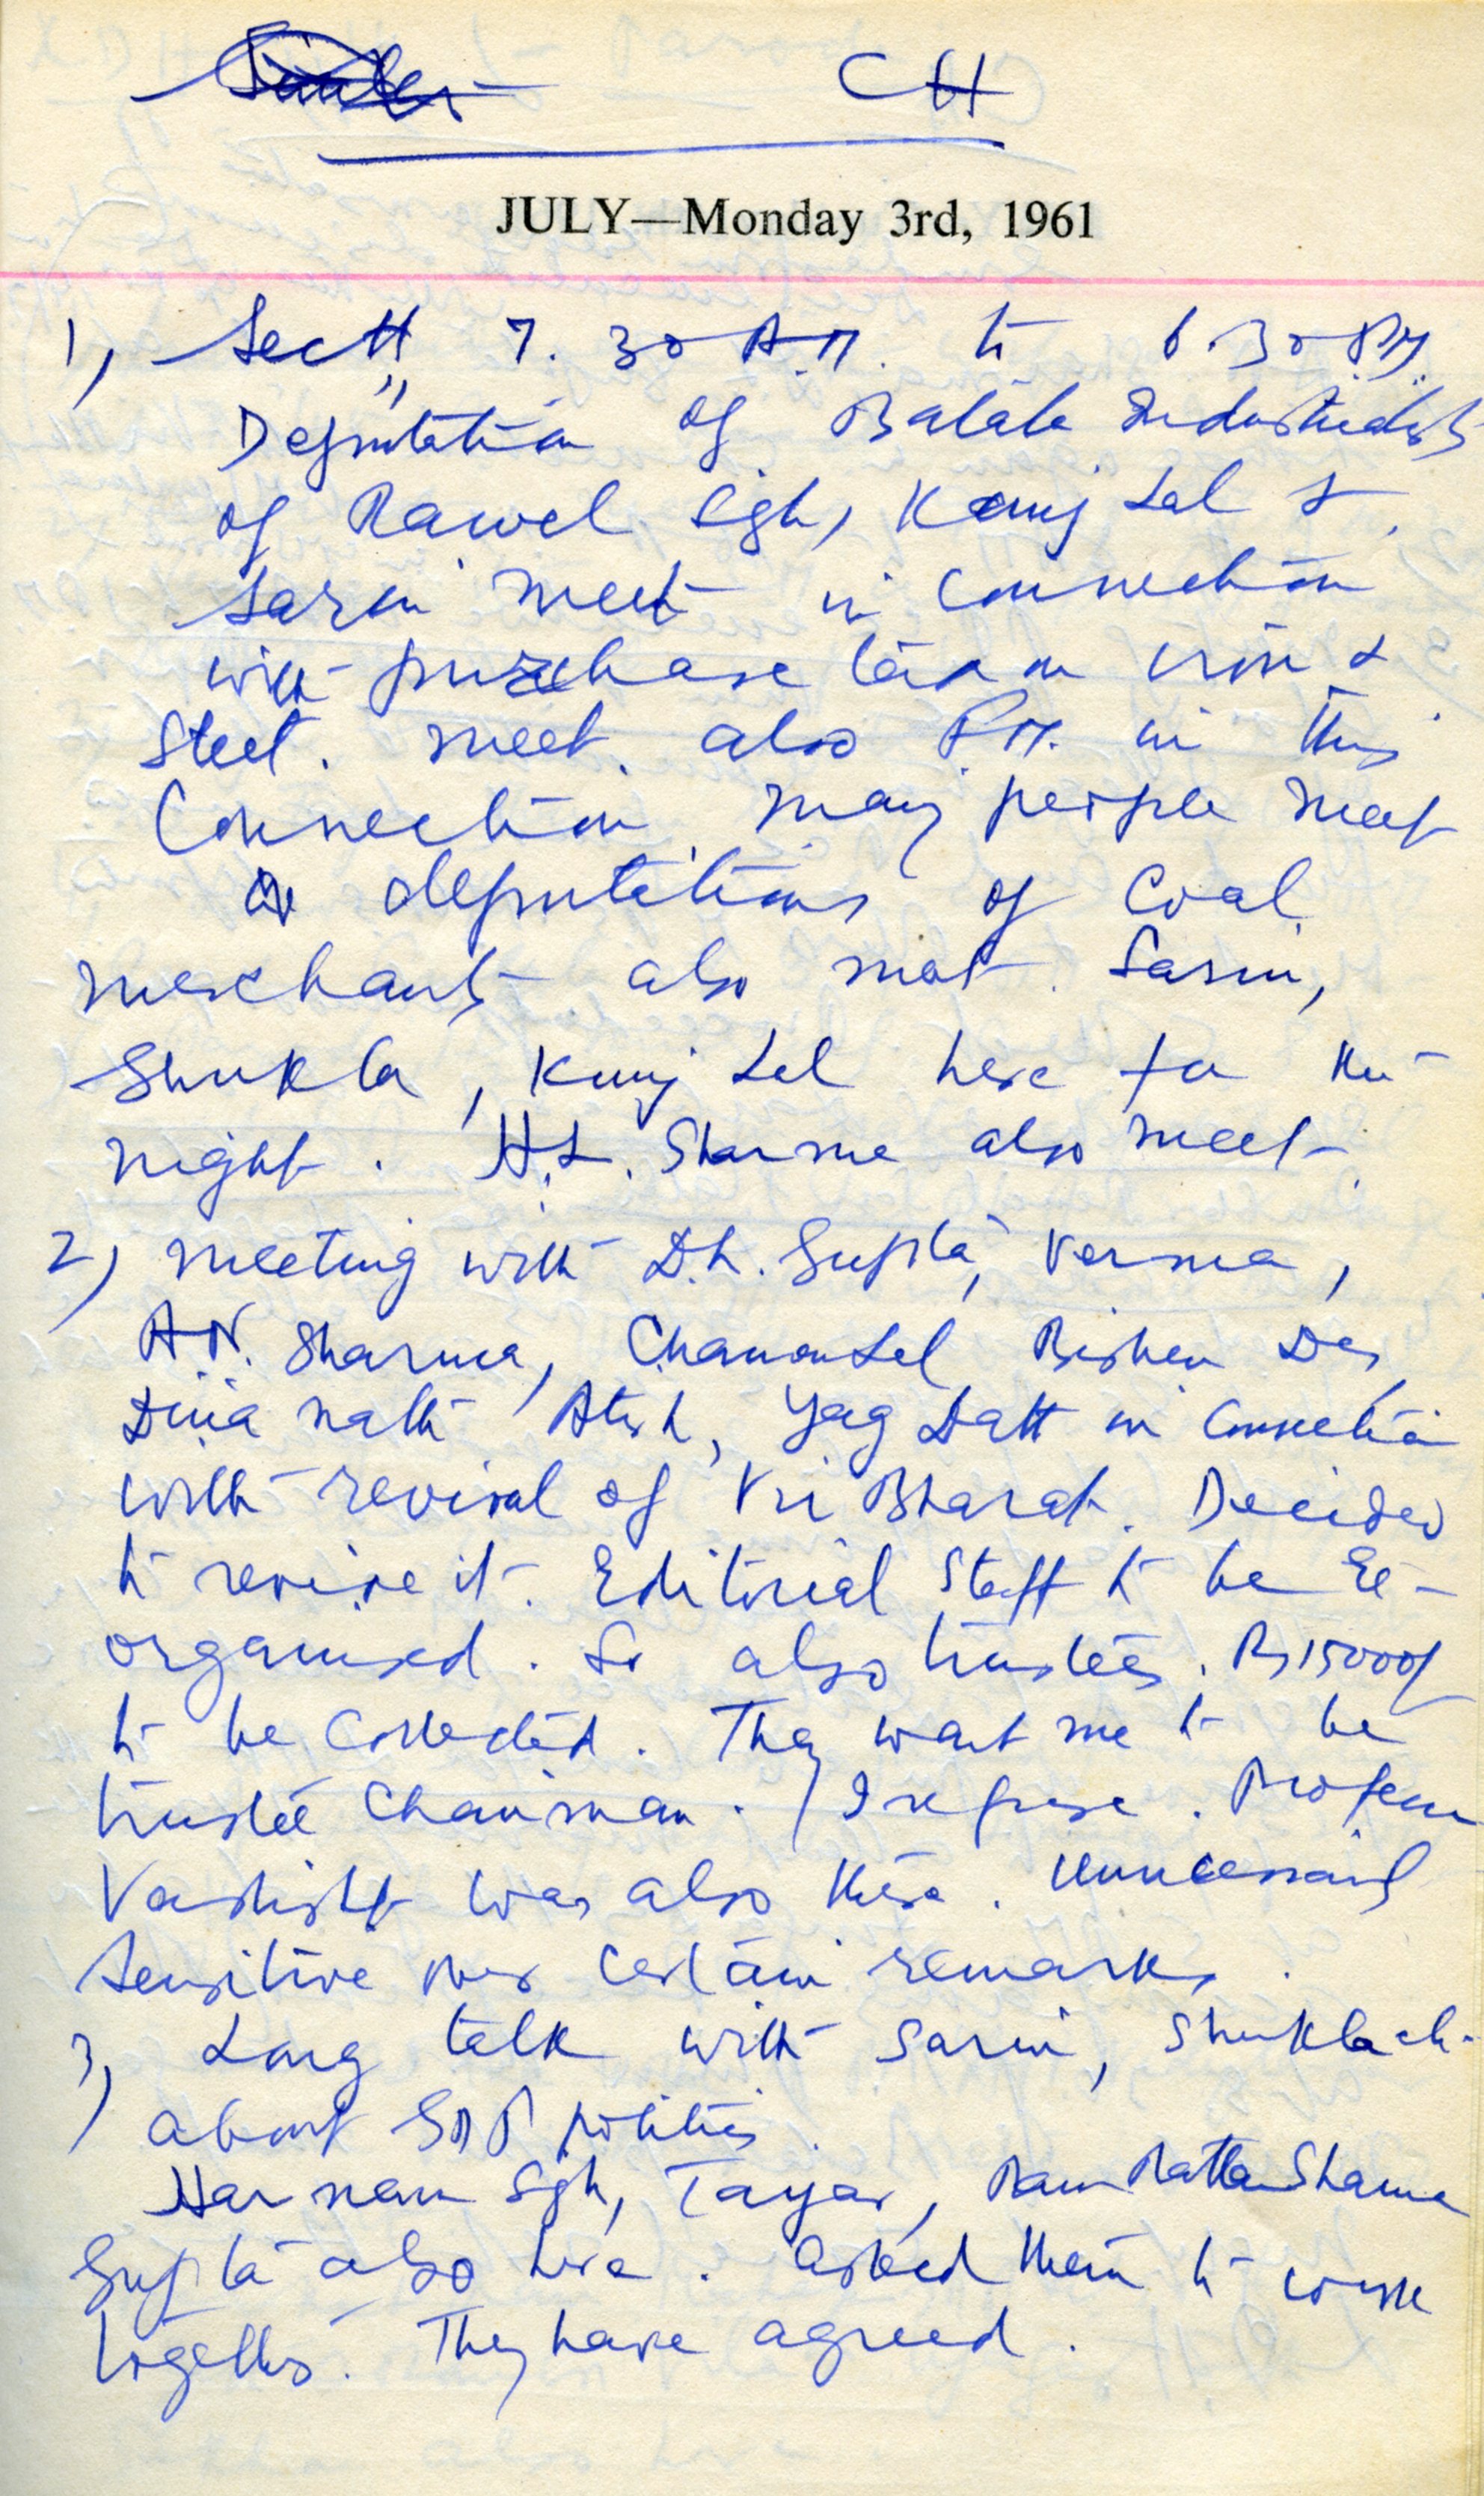 CH
JULY—Monday 3rd, 1961
1) Sectt 7.30 A.M. to 6.30 P.M.
Deputation of Batala Industrialists
of Rawel Sgh, Kunj Lal &
Sarin meet in connection
with purchase tax on iron &
Steel. meet also P.M. in this
Connection. Many people meet
deputations of Coal
merchants also met. Sarin,
Shukla, Kunj Lal here for the
night. H.L. Sharma also meet.
2) Meeting with D.L. Gupta, Verma,
A.N. Sharma, Chaman Lal Bishen Das,
Dina Nath Atish, Yag Datt in connection
with revival of Vir Bharat. Decided
to revive it. Editorial Staff to be Re-
organised. So also trustees. Rs 15000/
to be Collected. They want me to be
trustee Chairman. I refuse. Professor
Vashisht was also there. Unnecessarily
Sensitive over certain remarks.
3) Long talk with Sarin, Shukla etc.
about GDP politics.
Harnam Sgh, Taiyar, Ram Rattan Sharma
Gupta also here. Asked them to work
together. They have agreed.